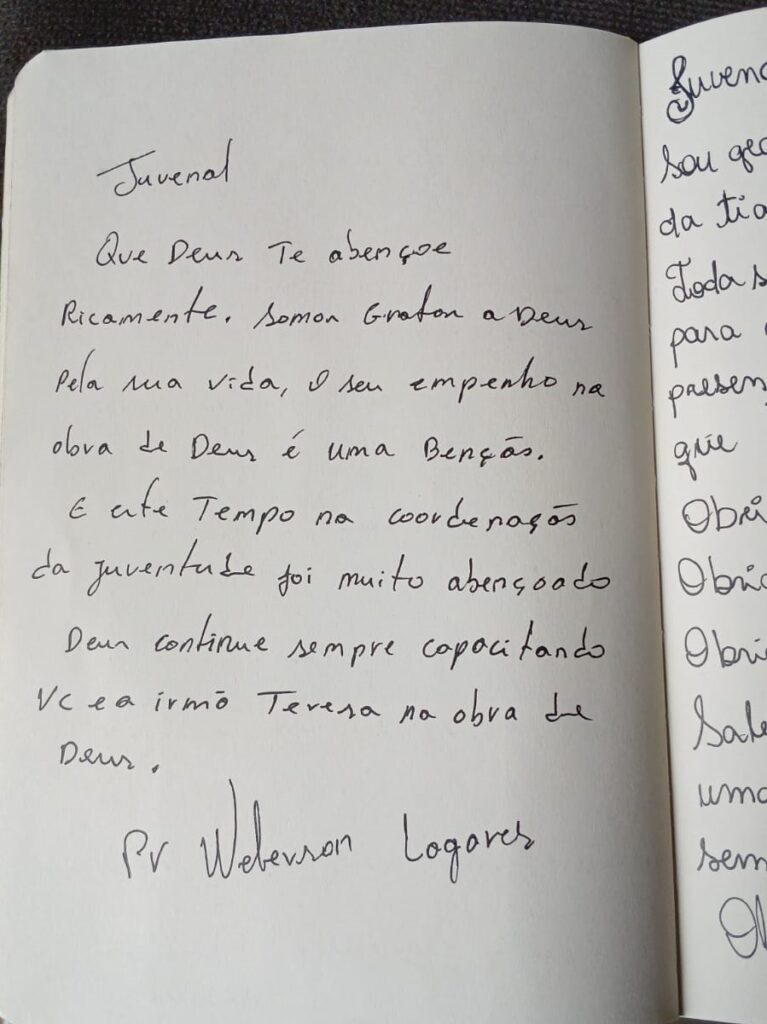 Juvenal
Que Deus Te abençoe
Ricamente. Somos Gratos a Deus
Pela sua vida, O seu empenho na
obra de Deus é uma Bençãs.
E este Tempo na coordenaçãs
da juventude foi muito abençoado
Deus continue sempre capacitando
Vc e a irmã Teresa na obra de
Deus.
Pr Weberson Logares
Juvena
Sou
da tia
Toda s
para
presen
que
Obri
Obri
Obri
uma
sem